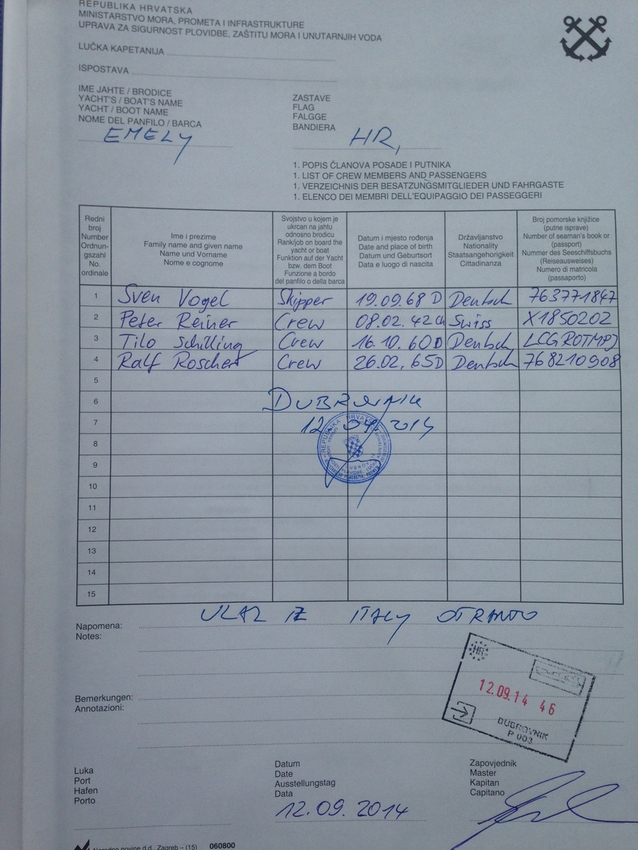 REPUBLIKA HRVATSKA
MINISTARSTVO MORA, PROMETA I INFRASTRUKTURE
UPRAVA ZA SIGURNOST PLOVIDBE, ZAŠTITU MORA I UNUTARNJIH VODA
LUČKA KAPETANIJA
ISPOSTAVA
IME JAHTE / BRODICE
YACHT'S / BOAT'S NAME
YACHT / BOOT NAME
NOME DEL PANFILO / BARCA
EMELY
ZASTAVE
FLAG
FALGGE
BANDIERA
HR,
1. POPIS ČLANOVA POSADE I PUTNIKA
1. LIST OF CREW MEMBERS AND PASSENGERS
1. VERZEICHNIS DER BESATZUNGSMITGLIEDER UND FAHRGASTE
1. ELENCO DEI MEMBRI DELL'EQUIPAGGIO DEI PASSEGGERI
Redni broj Number Ordnungszahl No. ordinale
Ime i prezime
Family name and given name
Name und Vorname
Nome e cognome
Svojstvo u kojem je
ukrcan na jahtu
odnosno brodicu
Rank/job on board the
yacht or boat
Funktion auf der Yacht
bzw. dem Boot
Funzione a bordo
del panfilo o della barca
Datum i mjesto rođenja
Date and place of birth
Datum und Geburtsort
Data e luogo di nascita
Državljanstvo
Nationality
Staatsangehorigkeit
Cittadinanza
Broj pomorske knjižice
(putne isprave)
Number of seaman's book or
(passport)
Nummer des Seeschiffsbuchs
(Reiseausweises)
Numero di matricola
(passaporto)
1 Sven Vogel Skipper 19.09.68 D Deutsch 763771847
2 Peter Reiner Crew 08.02.42 CH Swiss X1850202
3 Tilo Schilling Crew 16.10.60 D Deutsch
4 Ralf Roscher Crew 26.02.65 D Deutsch 768210908
5
6 DUBROVNIK
7 12 09 2014
8
9
10
11
12
13
14
15
Napomena: ULAZ IZ ITALY OTRANTO
Notes:
HR
12.09.14 46
DUBROVNIK
P 003
Bemerkungen:
Annotazioni:
Luka
Port
Hafen
Porto
Datum
Date
Ausstellungstag
Data
12.09.2014
Zapovjednik
Master
Kapitan
Capitano
Narodne novine d.d. Zagreb – (15) 060800